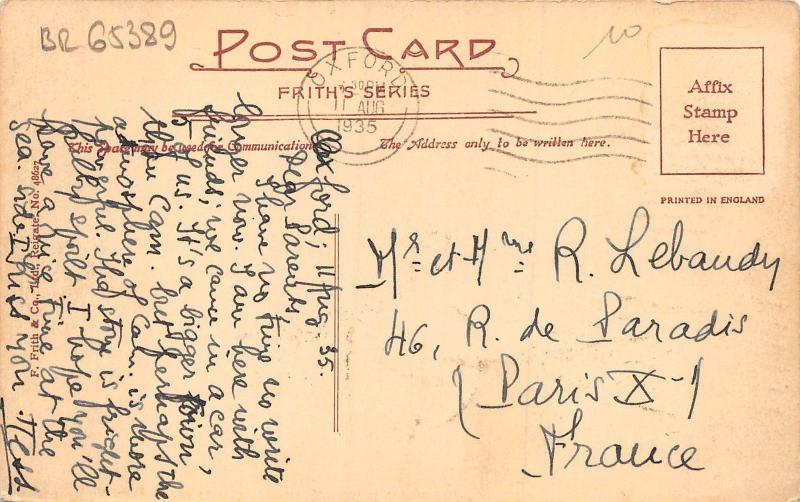 BR 65389
POST CARD
FRITH'S SERIES
OXFORD
11 AUG
1935
10
Affix
Stamp
Here
This Space may be used for Communication
The Address only to be written here.
PRINTED IN ENGLAND
F. Frith & Co., Ltd., Reigate. No. 48627
Oxford, 11 Aug. 35.
Dear Parents
I have no time to write
longer now. I am here with
friends; we came in a car,
5 of us. It's a bigger town
than Cam. but perhaps the
atmosphere of Cam. is more
The store is
fully spoilt. I hope you'll
have a nice time at the
sea-side. I kiss you. Tess
Mr et Mme R. Lebaudy
46, R. de Paradis
(Paris X)
France